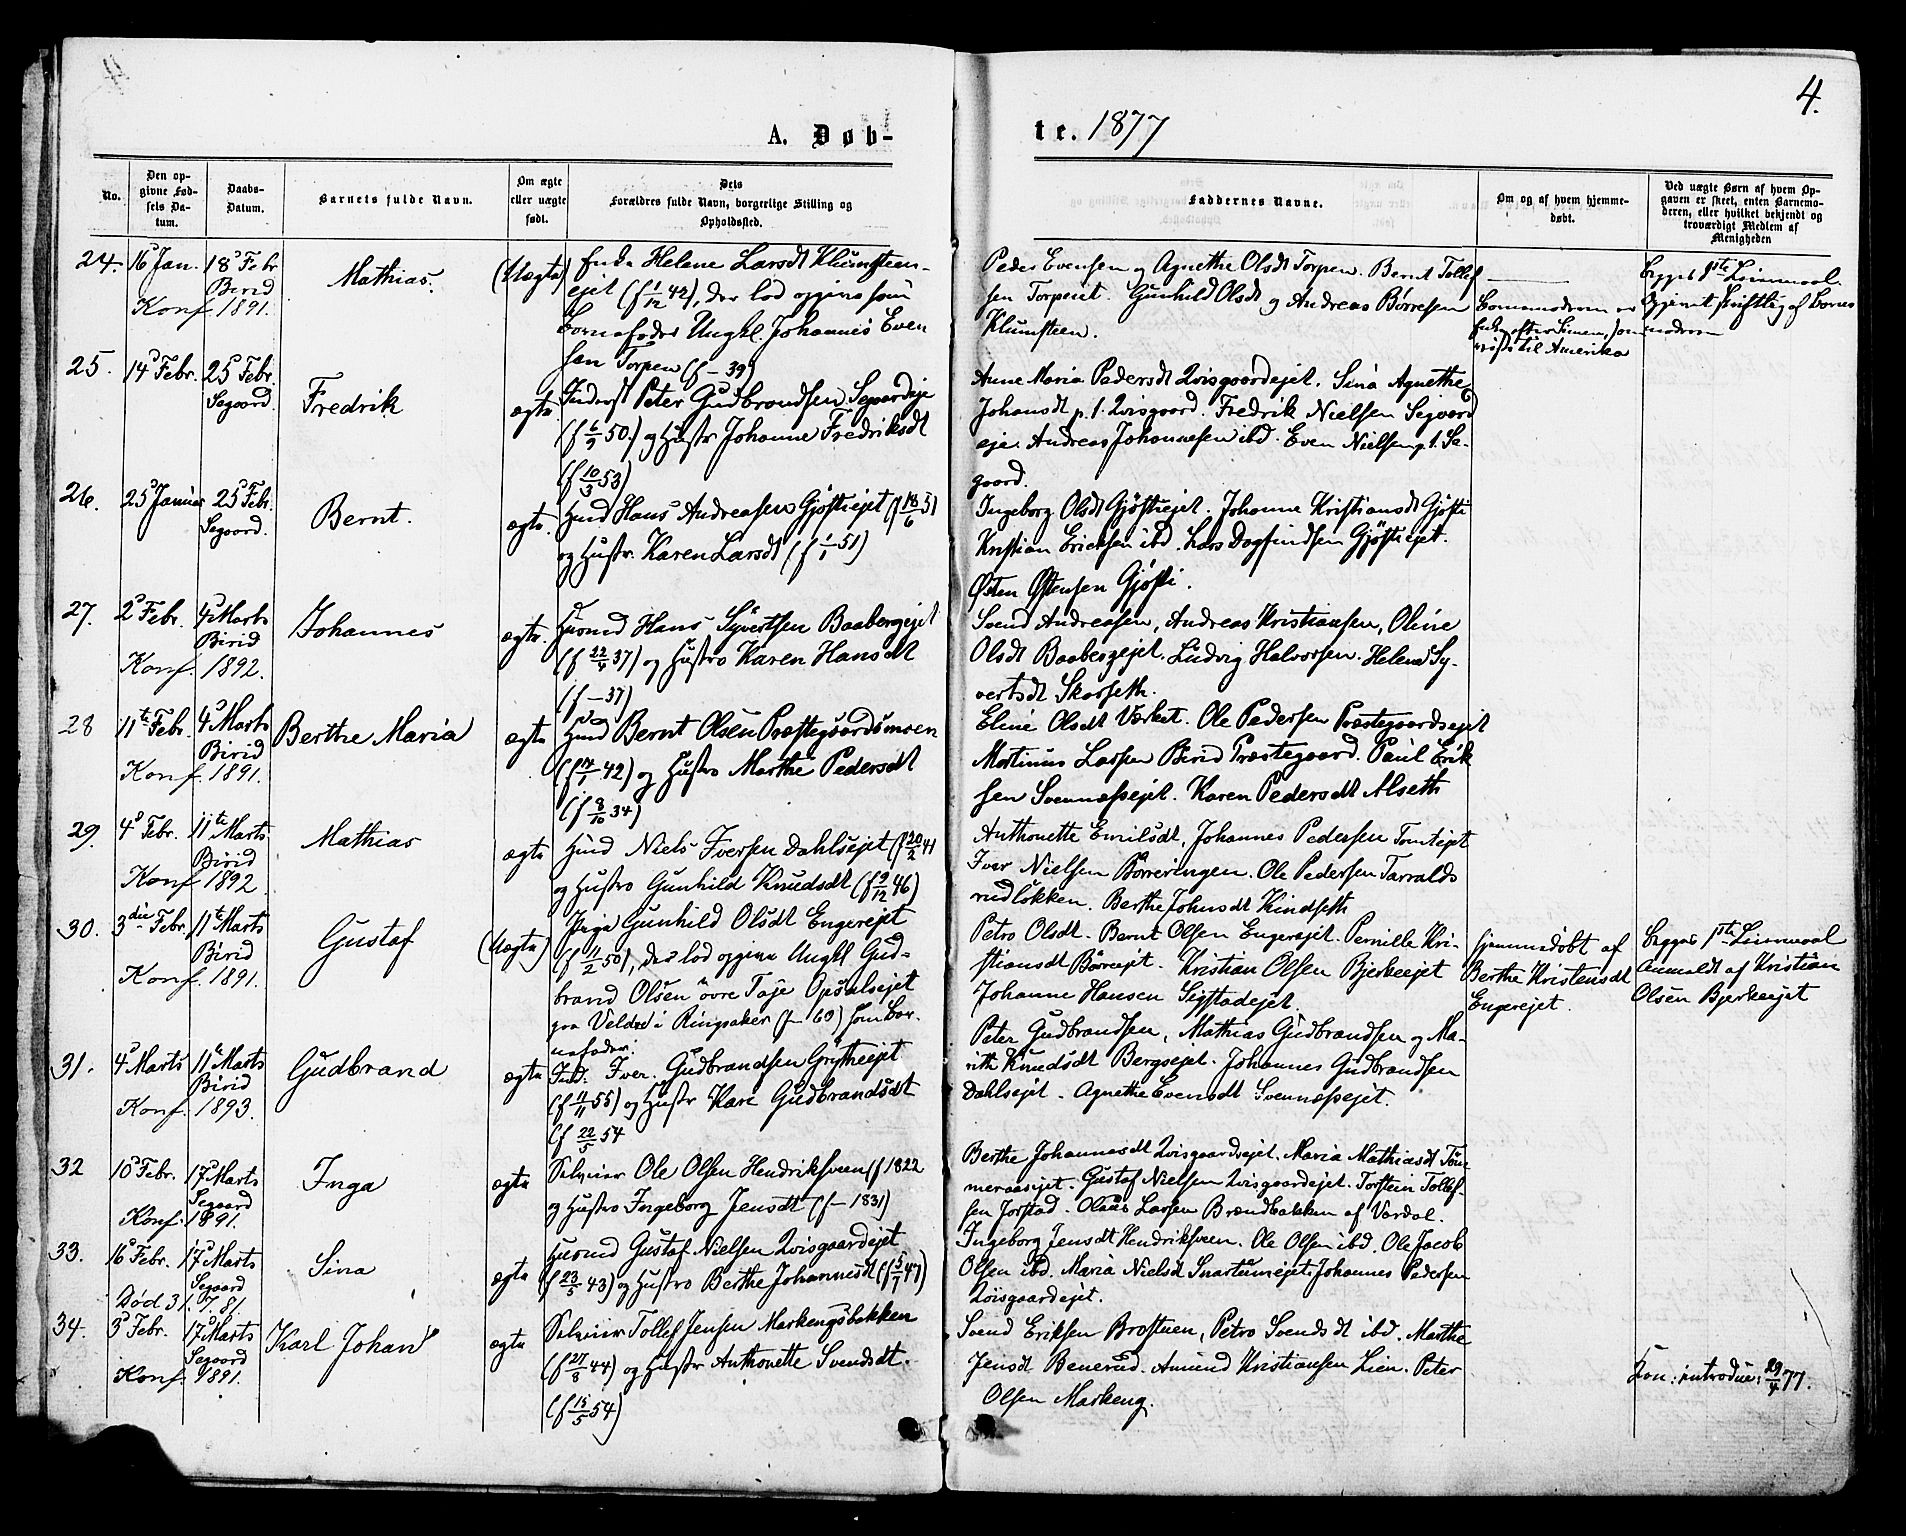 4.
A. Døb-
te. 1877
No.
Den op-
givne Fød-
sels Da-
tum.
Daabs-
Datum.
Barnets fulde Navn.
Om ægte
eller uægte
født.
Dets
Forældres fulde Navn, borgerlige Stilling og
Opholdssted.
Faddernes Navne.
Om og af hvem hjemme-
døbt.
Ved uægte Børn af hvem Op-
gaven er skeet, enten Barnemo-
deren, eller hvilket bekjendt og
troværdigt Medlem af
Menigheden
24. 16 Jan. 18 Febr
Birid
Konf. 1891.
Mathias.
(Uægte)
Enke Helene Larsdt Klumsteen-
ejet (f 1/12 42), der lod opgive som
Barnefader Ungkl. Johannes Even
sen Torpen (f – 39)
Peder Evensen og Agnethe Olsdt Torpen. Bernt Tollef
sen Torpeiet. Gunhild Olsdt og Andreas Børresen
Klumsteen.
Barnemoderen er
Enke efter Simen, som
reiste til Amerika
Begges 1ste Leiermaal.
Opgivet skriftlig af Barne
moderen
25. 14 Febr. 25 Febr.
Segaard.
Fredrik
ægte.
Inderst Peter Gudbrandsen Segaardeje
(f 6/9 50.) og Hustr. Johanne Fredriksdt
(f 10/3 53)
Anne Maria Pedersdt Qvisgaardejet. Sina Agnethe
Johansdt p. t. Qvisgaard. Fredrik Nielsen Segaard
eje. Andreas Johannesen ibd. Even Nielsen p. t. Se-
gaard.
26. 25 Januar 25 Febr.
Segaard.
Bernt.
ægte.
Hmd Hans Andreasen Gjøstiejet (f 18/6 51
og Hustr. Karen Larsdt (f 1/1 51)
Ingeborg Olsdt Gjøstiejet. Johanne Kristiansdt Gjøsti
Kristian Ericksen ibd. Lars Dagfindsen Gjøstiejet.
Østen Østensen Gjøsti.
27. 2 Febr. 4 Marts
Birid
Konf. 1892.
Johannes
ægte.
Husmd Hans Syvertsen Baabergejet
(f 22/8 37) og Hustro Karen Hansdt
(f – 37)
Svend Andreasen, Andreas Kristiansen, Oline
Olsdt Baabergejet. Ludvig Halvorsen. Helene Sy-
vertsdt Skarseth.
28 11te Febr. 4 Marts
Birid
Konf. 1891.
Berthe Maria
ægte
Hmd Bernt Olsen Præstegaardsmoen
(f 17/1 42) og Hustro Marthe Pedersdt
(f 8/10 34)
Eline Olsdt Værket. Ole Pedersen Præstegaardsejet
Martinus Larsen Birid Præstegaard. Paul Erik
sen Svennæsejet. Karen Pedersdt Alseth
29. 4 Febr. 11te Marts
Birid
Konf. 1892
Mathias
ægte
Hmd Niels Iversen Dahlsejet (f 20/2 41
og Hustro Gunhild Knudsdt (f 9/12 46)
Anthonette Emilsdt, Johannes Pedersen Tomtejet
Iver Nielsen Børreringen. Ole Pedersen Tarralds
rudløkken. Berthe Johnsdt Kindseth
30. 3die Febr. 11te Marts
Birid
Konf. 1891.
Gustaf
(Uægte)
Pige Gunhild Olsdt Engerejet
(f 11/2 50), der lod opgive Ungkl Gud-
brand Olsen øvre Taje Opsalsejet
paa Veldre i Ringsaker (f – 60) som Bar-
nefader.
Petro Olsdt. Bernt Olsen Engerejet. Pernille Kri-
stiansdt Børreejet. Kristian Olsen Bjerkeejet
Johanne Hansen Sigstadejet.
Hjemmedøbt af
Berthe Kristensdt
Engerejet.
Begges 1ste Leiermaal
Anmeldt af Kristian
Olsen Bjerkeejet
31. 4 Marts 11te Marts
Birid
Konf. 1893.
Gudbrand
ægte
Ind: Iver Gudbrandsen Grytheejet
(f 9/11 55) og Hustr Kari Gudbrandsdt
(f 22/5 54
Peter Gudbrandsen, Mathias Gudbrandsen og Ma-
rith Knudsdt Bergsejet. Johannes Gudbrandsen
Dahlsejet. Agnethe Evensdt Svennæsejet.
32 10 Febr. 17 Marts
Segaard
Konf. 1891.
Inga
ægte
Selveier Ole Olsen Hendriksveen (f 1822
og Hustro Ingeborg Jensdt (f – 1831)
Berthe Johannesdt Qvisgaardsejet. Maria Mathiasdt Tøm-
meraasejet. Gustaf Nielsen Qvisgaardejet. Torstein Tollef-
sen Jørstad. Olaus Larsen Brændbakken af Vardal.
33. 16 Febr. 17 Marts
Segaard
Død 31.7.81.
Sina
ægte
Husmd Gustaf Nielsen Qvisgaardejet
(f 23/5 43) og Hustro Berthe Johannesdt (f 5/7 47)
Ingeborg Jensdt Hendriksveen. Ole Olsen ibd. Ole Jacob
Olsen ibd. Maria Nielsdt Snartumejet. Johannes Pedersen
Qvisgaardejet.
34. 3 Febr. 17 Marts
Segaard
Konf. 1891.
Karl Johan
ægte
Selveier Tollef Jensen Markengsbakken
(f 27/8 44) og Hustr Anthonette Svendsdt.
(f 15/5 54)
Svend Eriksen Brostuen, Petro Svendsdt ibd. Marthe
Jensdt Benerud. Amund Kristiansen Lien. Peter
Olsen Markeng.
Kon: introdue: 29/4 77.